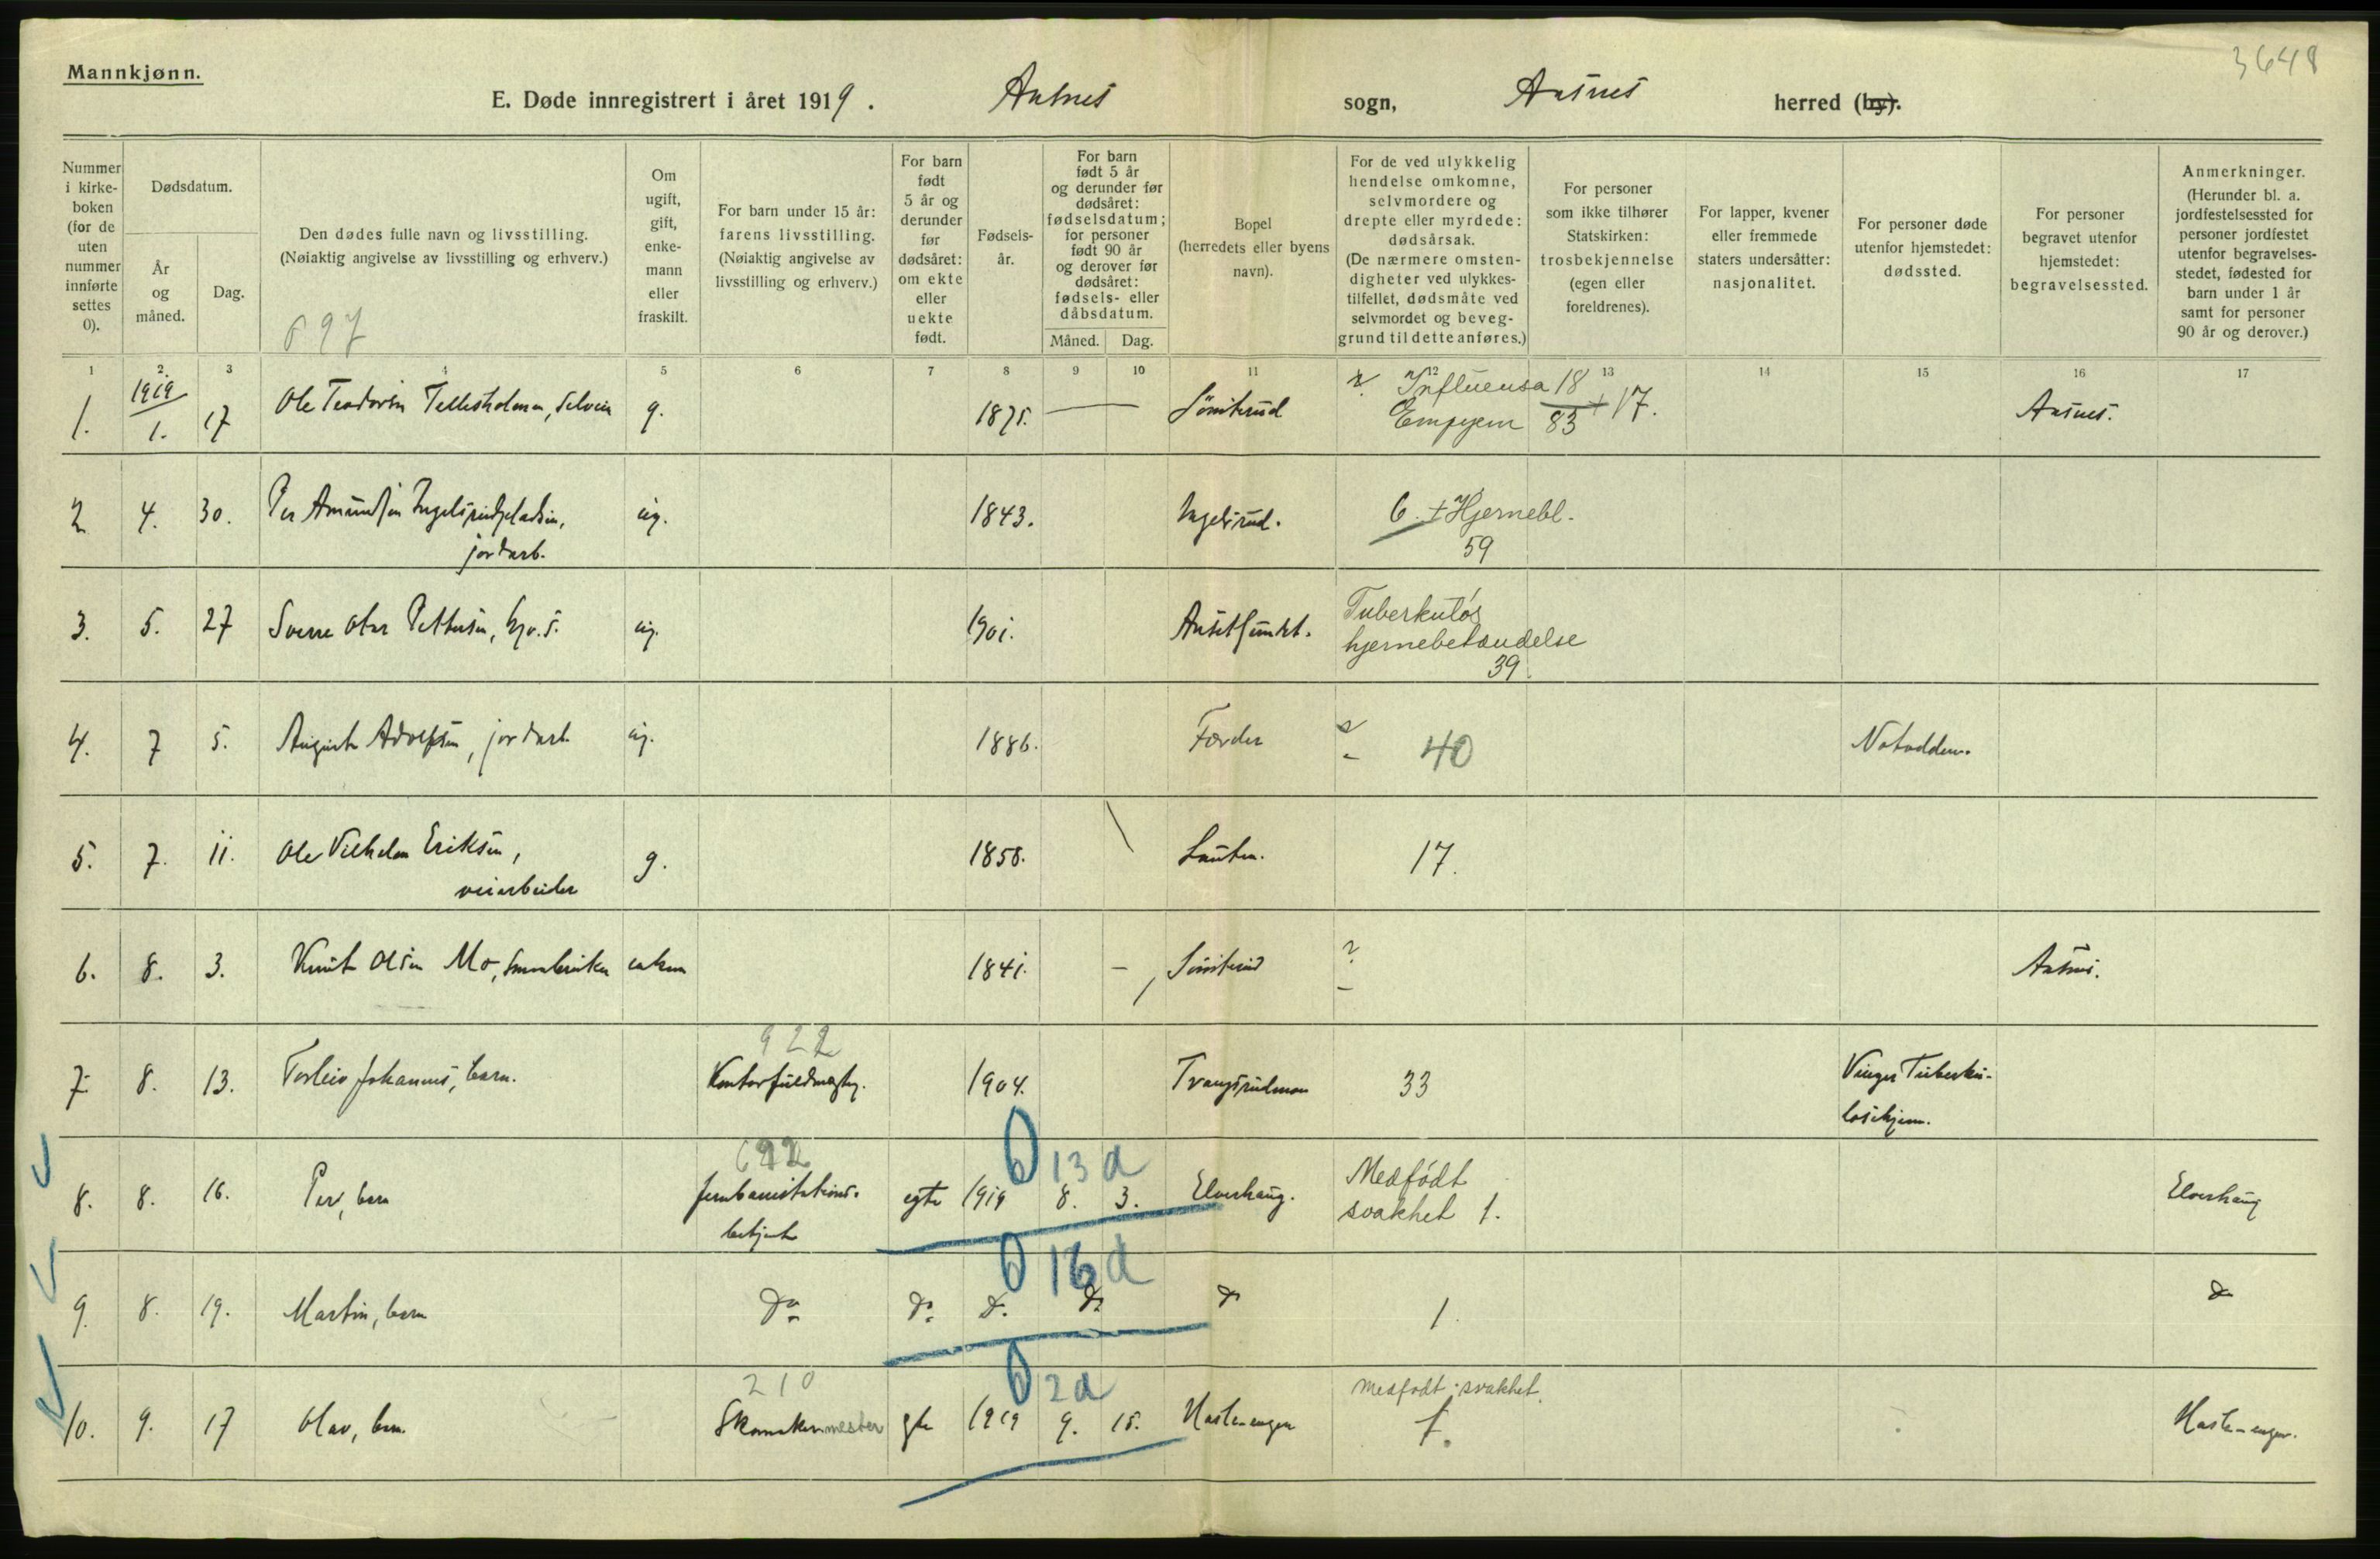 3648
Mannkjønn.
E. Døde innregistrert i året 1919. Aasnes sogn, Aasnes herred (by).
Nummer i kirke-boken (for de uten nummer innførte settes 0).
Dødsdatum.
År og måned.
Dag.
Den dødes fulle navn og livsstilling.
(Nøiaktig angivelse av livsstilling og erhverv.)
697
Om ugift, gift, enke-mann eller fraskilt.
For barn under 15 år: farens livsstilling. (Nøiaktig angivelse av livsstilling og erhverv.)
For barn født 5 år og derunder før dødsåret: om ekte eller uekte født.
Fødsels-år.
For barn født 5 år og derunder før dødsåret: fødselsdatum; for personer født 90 år og derover før dødsåret: fødsels- eller dåbsdatum.
Måned. Dag.
Bopel (herredets eller byens navn).
For de ved ulykkelig hendelse omkomne, selvmordere og drepte eller myrdede: dødsårsak. (De nærmere omsten-digheter ved ulykkes-tilfellet, dødsmåte ved selvmordet og beveg-grund til dette anføres.)
For personer som ikke tilhører Statskirken: trosbekjennelse (egen eller foreldrenes).
For lapper, kvener eller fremmede staters undersåtter: nasjonalitet.
For personer døde utenfor hjemstedet: dødssted.
For personer begravet utenfor hjemstedet: begravelsessted.
Anmerkninger. (Herunder bl. a. jordfestelsessted for personer jordfestet utenfor begravelses-stedet, fødested for barn under 1 år samt for personer 90 år og derover.)
1 2 3 4 5 6 7 8 9 10 11 12 13 14 15 16 17
1. 1919 1. 17 Ole Teodorsen g. 1875. — Influensa 18 + 17. Aasnes.
Empyem 83
2 4. 30. Per Amundsen Ingelsrudpladsen, ug. 1843. Ingelsrud. 6 + Hjernebl.
jordarb. 59
3. 5. 27 Sverre Olav Pettersen, ug. 1901. Tuberkuløs
hjernebetændelse
39.
4. 7 5. August Adolfsen, jordarb. ug. 1886. 40 Notodden.
5. 7. 11. Ole Vilhelm Eriksen, g. 1858. 17.
veiarbeider
6. 8. 3. Knut Olsen Mo, enkem 1841. — ? Aasnes.
922
7. 8. 13. Torleiv Johannes, barn. Kontorfuldmægtig. 1904. 33 Vinger Tuberku-
losehjem.
622 0 13 d
8. 8. 16. Per, barn Jernbanestations- egte 1919 8. 3. Elverhaug. Medfødt
betjent svakhet 1. Elverhaug
0 16 d
9. 8. 19. Martin, barn do. do. do. do. do 1. do
210 0 2 d
10. 9. 17 Olav, barn. Skomakermester gte 1919 9. 15. Hasle-engen medfødt svakhet.
1. Hasle-engen.